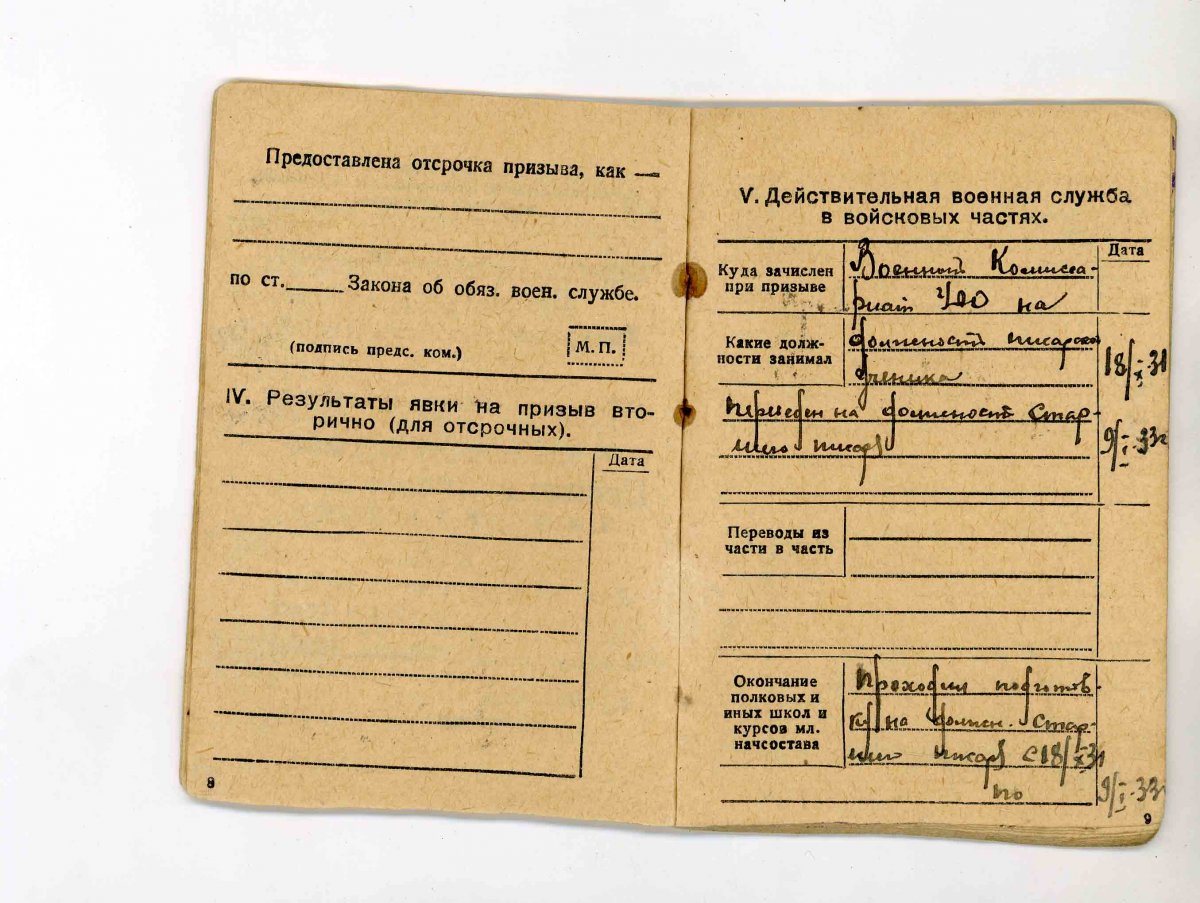 Предоставлена отсрочка призыва, как —
по ст.______ Закона об обяз. воен. службе.
(подпись предс. ком.)
М. П.
IV. Результаты явки на призыв вто-
рично (для отсрочных).
Дата
8
V. Действительная военная служба
в войсковых частях.
Дата
Куда зачислен
при призыве
Военный Комисса-
риат на
Какие долж-
ности занимал
должность писарск
ученика
18/X-31
Переведен на должность Стар-
шего писаря
9/I-33г
Переводы из
части в часть
Окончание
полковых и
иных школ и
курсов мл.
начсостава
Проходил подготов-
ку на должн. Стар-
шего писаря с 18/X31
по
9/I-33г
9